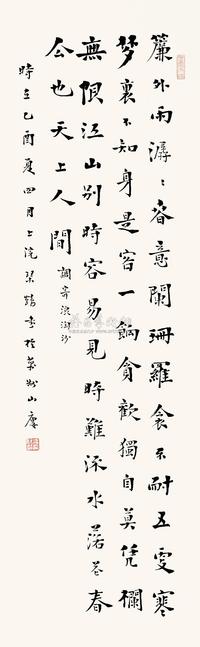 簾外雨潺〻春意闌珊羅衾不耐五更寒
夢裏不知身是客一餉貪歡獨自莫凭欄
無限江山別時容易見時難流水落花春
去也天上人間 調寄浪淘沙
時在乙酉夏四月上浣 於 山廬